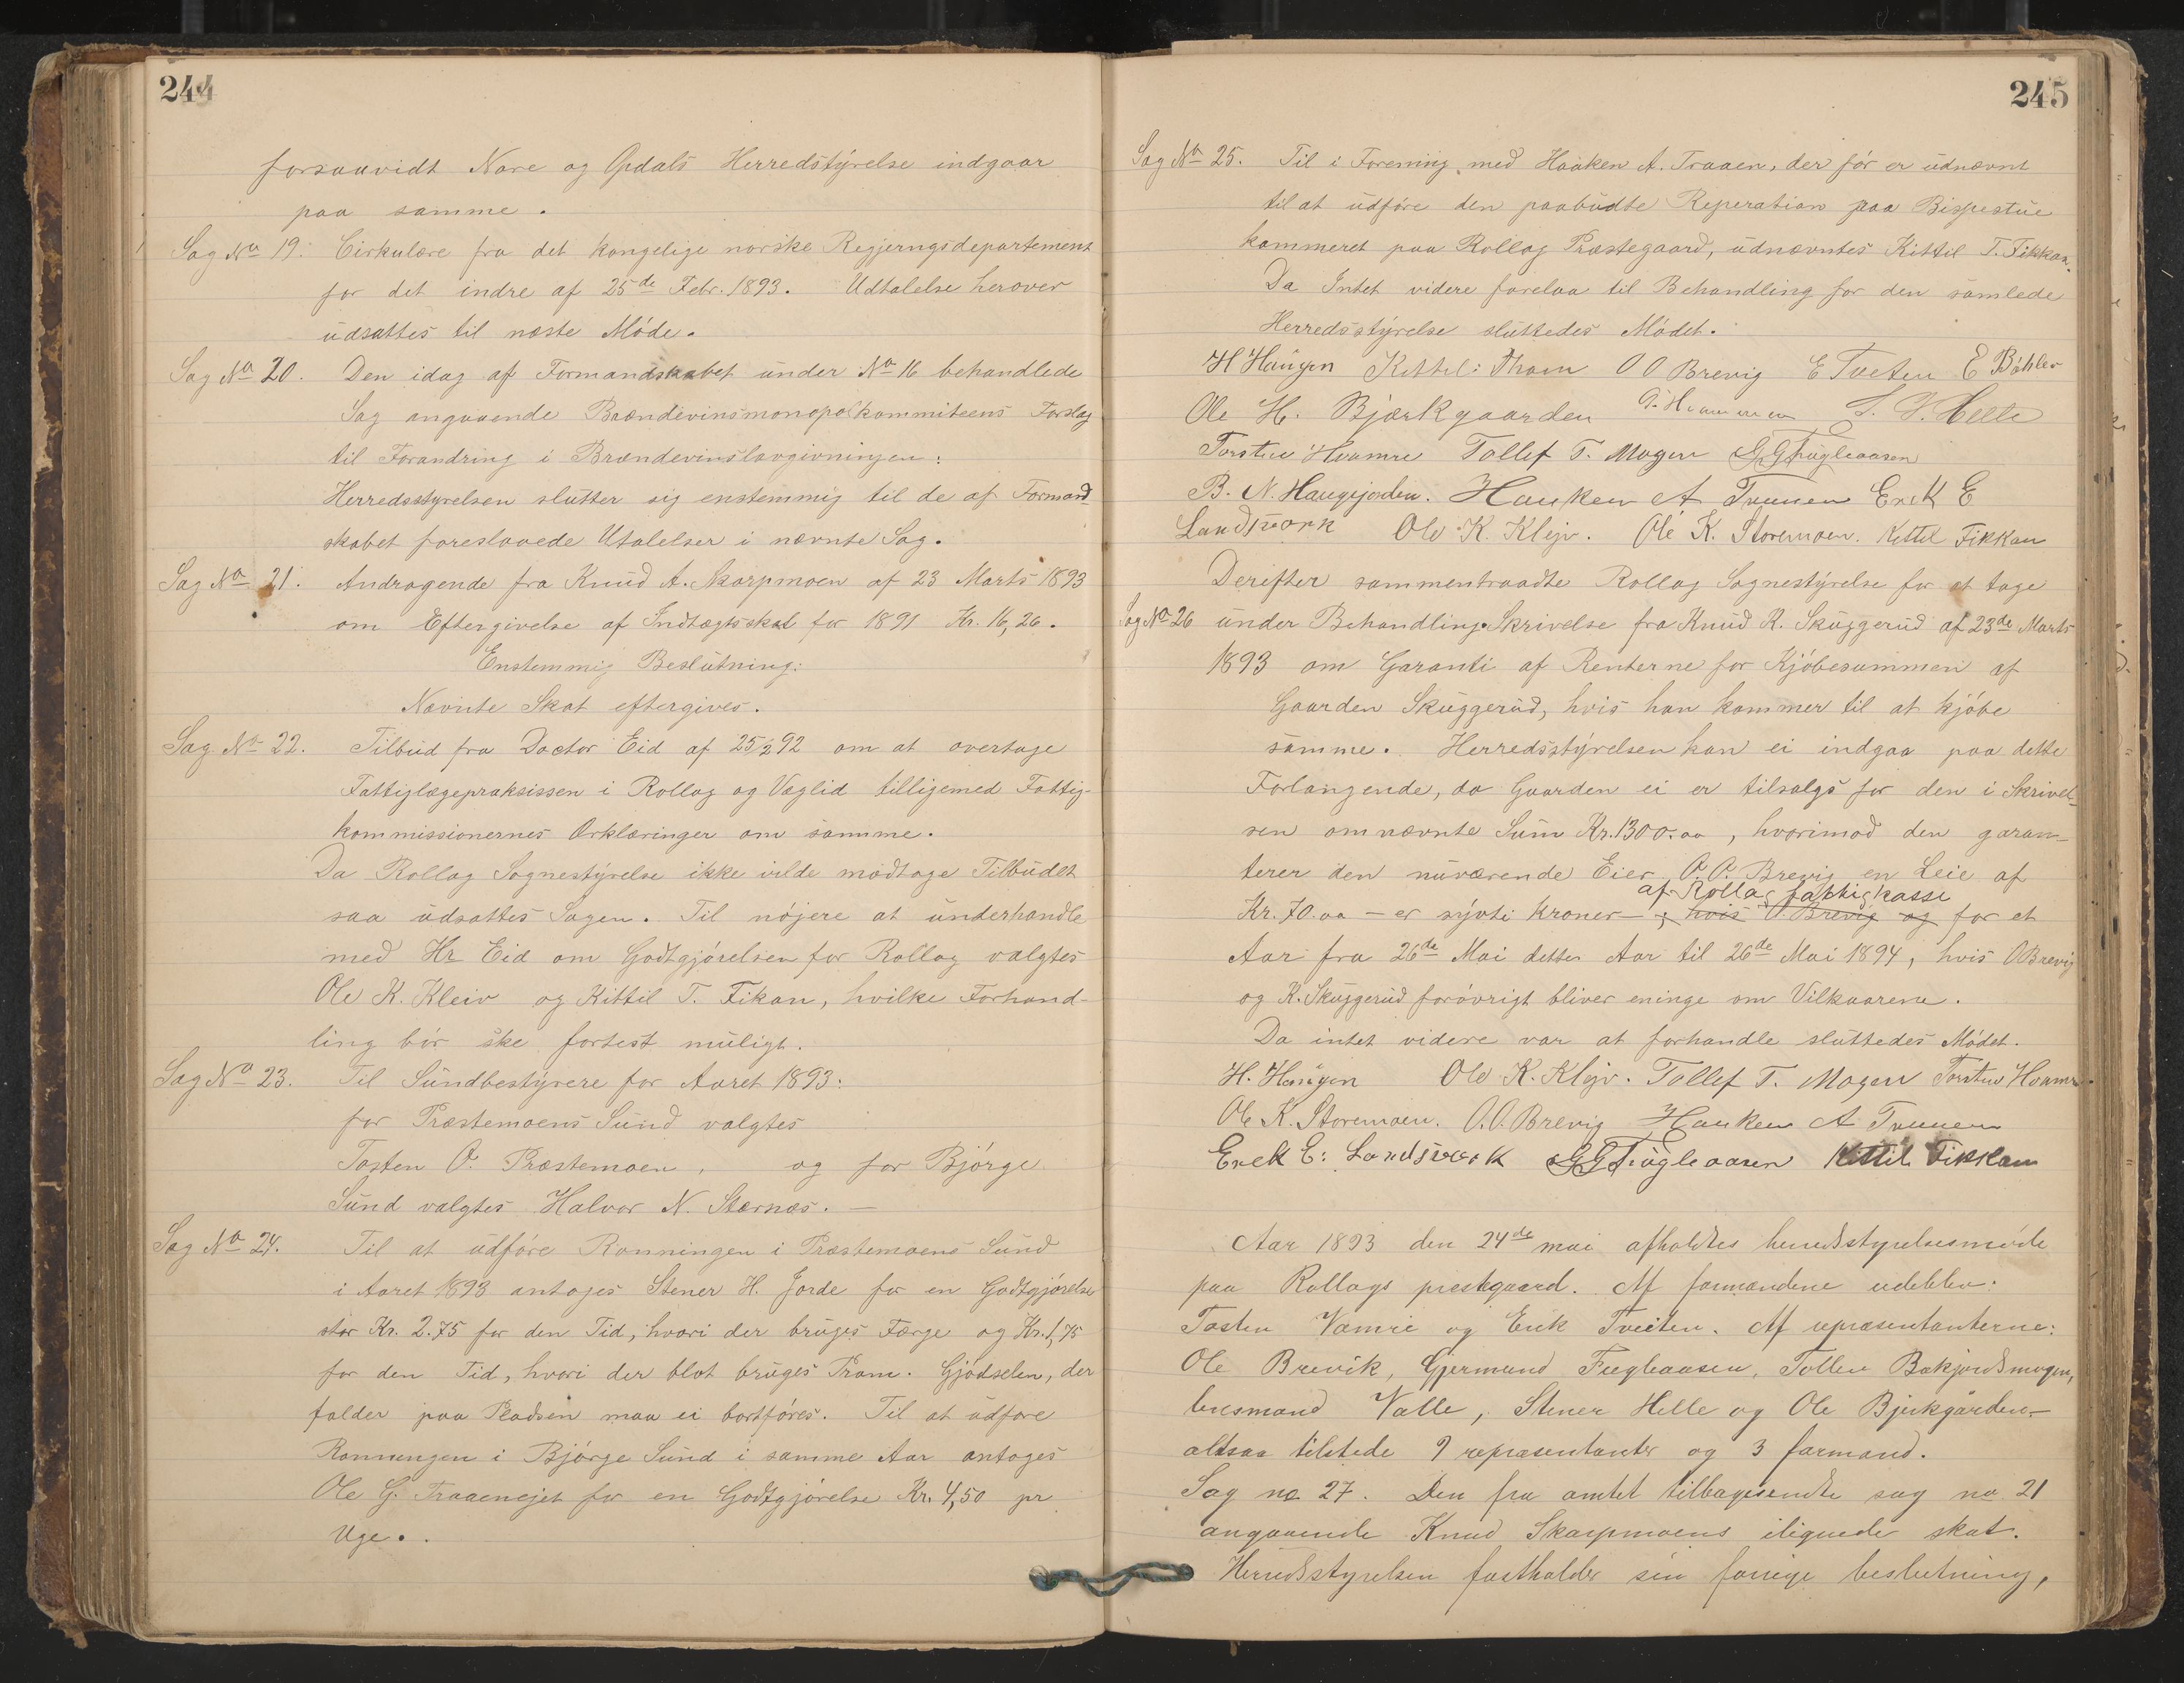 244
forsaavidt Nore og Opdals Herredstyrelse indgaar
paa samme.
Sag No 19. Cirkulære fra det kongelige norske Regjerngsdepartement
for det indre af 25de Febr. 1893. Udtalelse herover
udsattes til næste Møde.
Sag No 20. Den idag af Formandskabet under No 16 behandlede
Sag angaaende Brændevinsmonopolkommiteens Forslag
til Forandring i Brændevinslovgivningen:
Herredsstyrelsen slutter sig enstemmig til de af Formand-
skabet foreslaaede Utalelser i nævnte Sag.
Sag No 21. Andragende fra Knud A. Skarpmoen af 23 Marts 1893
om Eftergivelse af Indtægtsskat for 1891 Kr. 16,26.
Enstemmig Beslutning:
Nævnte Skat eftergives.
Sag No 22. Tilbud fra Doctor Eid af 25/2 92 om at overtage
Fattiglægepraksissen i Rollag og Veglid tilligemed Fattig-
kommissionernes Erklæringer om samme.
Da Rollag Sognestyrelse ikke vilde modtage Tilbudet
saa udsattes Sagen. Til nøjere at underhandle
med Hr Eid om Godtgjørelsen for Rollag valgtes
Ole K. Kleiv og Kittil T. Fikan, hvilke Forhand-
ling bør ske fortest muligt.
Sag No 23. Til Sundbestyrere for Aaret 1893:
for Præstemoens Sund valgtes
Tosten O. Præstemoen, og for Bjørge
Sund valgtes Halvor N. Stærnæs. —
Sag No 24. Til at udføre Ronningen i Præstemoens Sund
i Aaret 1893 antoges Stener H. Jorde for en Godtgjørelse
stor Kr. 2.75 for den Tid, hvori der bruges Færge og Kr. 1,75
for den Tid, hvori der blot bruges Pram. Gjødselen, der
falder paa Pladsen maa ei bortføres. Til at udføre
Ronningen i Bjørge Sund i samme Aar antoges
Ole G. Traaenejet for en Godtgjørelse Kr. 4,50 pr
Uge.
245
Sag No 25. Til i Forening med Haaken A. Traaen, der før er udnævnt
til at udføre den paabudte Reperation paa Bispestue
kammeret paa Rollag Præstegaard, udnævntes Kittil T. Fikkan.
Da Intet videre forelaa til Behandling for den samlede
Herredsstyrelse sluttedes Mødet.
H Haugen Kittil Tham O O Brevig E Tveten E Bøhler
Ole H. Bjørkgaarden S. Helle
Torsten Hvamre Tollef T. Mogen G G Fugleaasen
B. N. Haugejorden. Haaken A Traaen Erek E
Landsverk Ole K. Klejv. Ole K. Storemoen. Kittil Fikkan
Derifter sammentraadte Rollag Sognestyrelse for at tage
Sag No 26 under Behandling. Skrivelse fra Knud K. Skuggerud af 23de Marts
1893 om Garanti af Renterne for Kjøbesummen af
Gaarden Skuggerud, hvis han kommer til at kjøbe
samme. Herredsstyrelsen kan ei indgaa paa dette
Forlangende, da Gaarden ei er tilsalgs for den i Skrivel-
sen omnævnte Sum Kr. 1300.00, hvorimod den garan-
terer den nuværende Eier O. O. Brevig en Leie af
af Rollag fattigkasse
Kr. 70.00 – er sÿvti Kroner – ; hvis O. Brevig og for et
Aar fra 26de Mai dette Aar til 26de Mai 1894, hvis O Brevig
og K. Skuggerud forøvrigt bliver eninge om Vilkaarene.
Da intet videre var at forhandle sluttedes Mødet.
H. Haugen Ole K. Klejv. Tollef T. Mogen Torsten Hvamre.
Ole K. Storemoen. O. O. Brevig Haaken A Traaen
Erek E. Landsverk G G Fugleaasen Kittil Fikkan
Aar 1893 den 24de mai afholdtes herredsstyrelsesmøde
paa Rollags prestegaard. Af formændene udeblev:
Tosten Vamre og Erik Tveiten. Af repræsentanterne:
Ole Brevik, Gjermund Fugleaasen, Tollev Bakjordsmogen,
lensmand Valle, Stener Helle og Ole Bjerkgården –
altsaa tilstede 9 repræsentanter og 3 formænd.
Sag no 27. Den fra amtet tilbagesendte sag no 21
angaaende Knud Skarpmoens ilignede skat.
Herredsstyrelsen fastholder sin forrige beslutning,